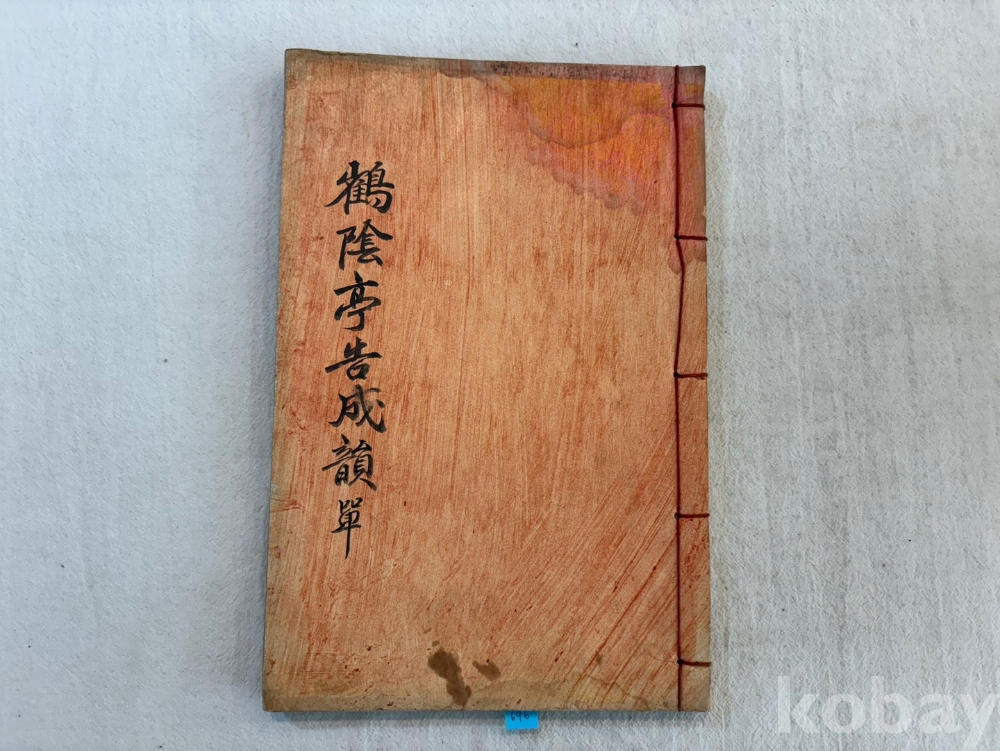 鶴陰亭告成韻單
696
kobay